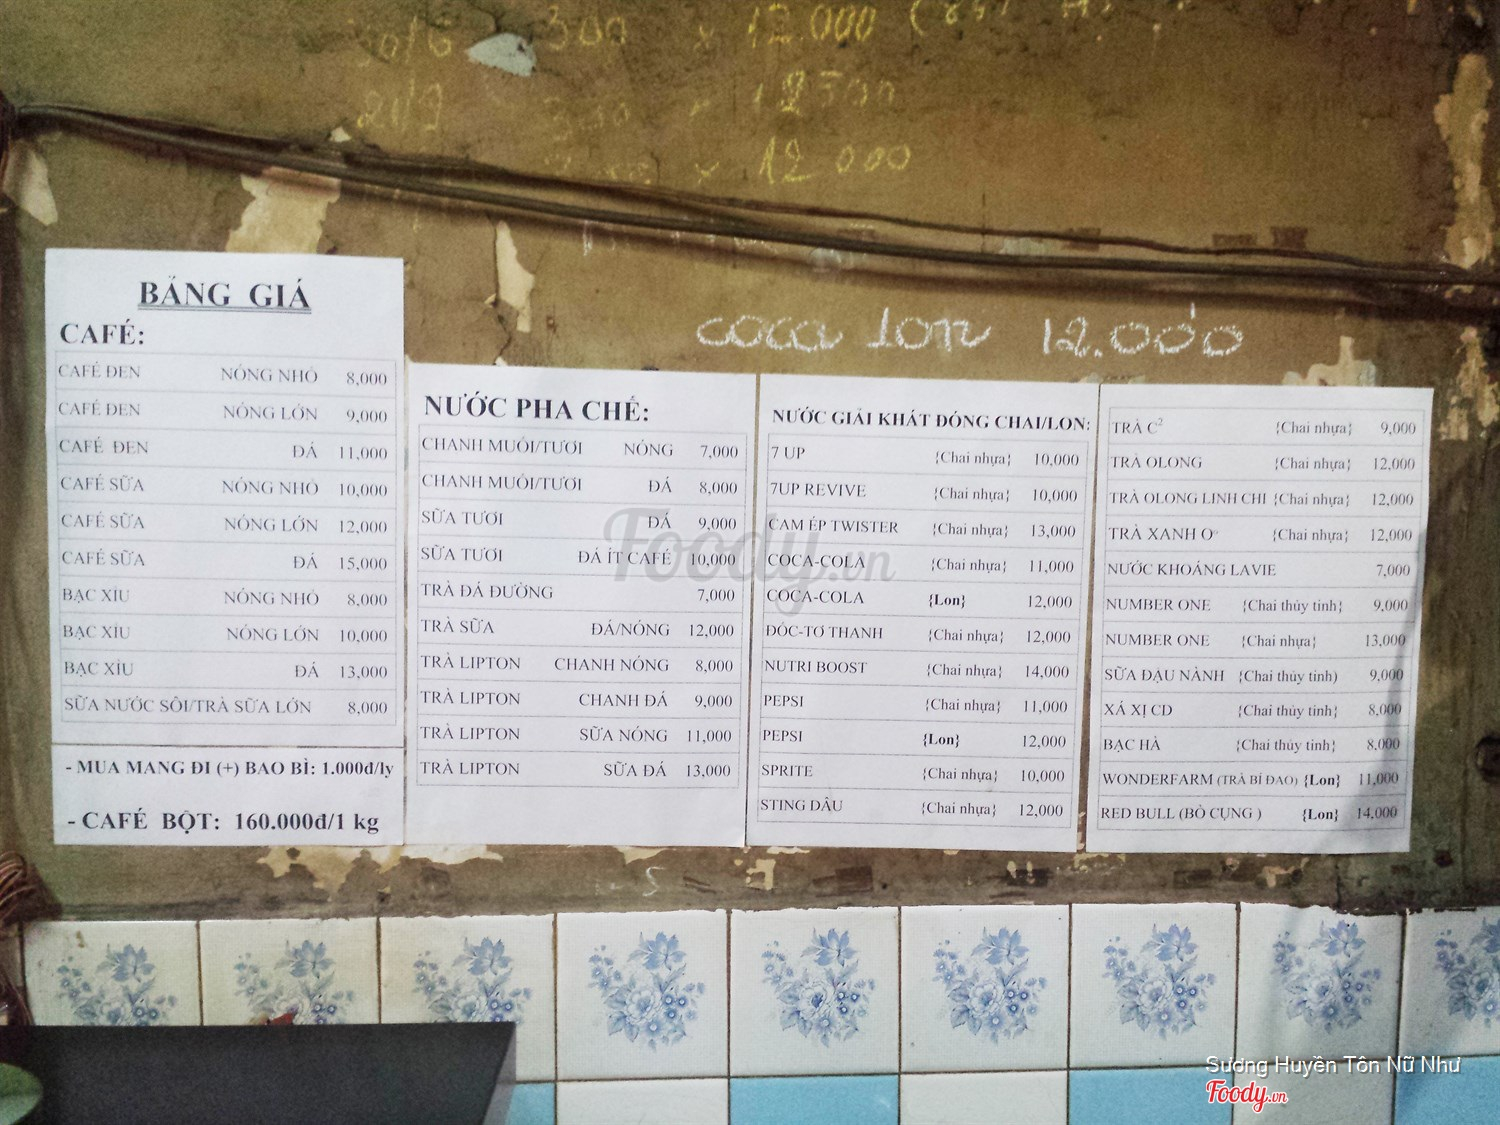 300 x 12.000
x 12 000
coca lon 12.000
BẢNG GIÁ
CAFÉ:
CAFÉ ĐEN NÓNG NHỎ 8,000
CAFÉ ĐEN NÓNG LỚN 9,000
CAFÉ ĐEN ĐÁ 11,000
CAFÉ SỮA NÓNG NHỎ 10,000
CAFÉ SỮA NÓNG LỚN 12,000
CAFÉ SỮA ĐÁ 15,000
BẠC XỈU NÓNG NHỎ 8,000
BẠC XỈU NÓNG LỚN 10,000
BẠC XỈU ĐÁ 13,000
SỮA NƯỚC SÔI/TRÀ SỮA LỚN 8,000
- MUA MANG ĐI (+) BAO BÌ: 1.000đ/ly
- CAFÉ BỘT: 160.000đ/1 kg
NƯỚC PHA CHẾ:
CHANH MUỐI/TƯƠI NÓNG 7,000
CHANH MUỐI/TƯƠI ĐÁ 8,000
SỮA TƯƠI ĐÁ 9,000
SỮA TƯƠI ĐÁ ÍT CAFÉ 10,000
TRÀ ĐÁ ĐƯỜNG 7,000
TRÀ SỮA ĐÁ/NÓNG 12,000
TRÀ LIPTON CHANH NÓNG 8,000
TRÀ LIPTON CHANH ĐÁ 9,000
TRÀ LIPTON SỮA NÓNG 11,000
TRÀ LIPTON SỮA ĐÁ 13,000
NƯỚC GIẢI KHÁT ĐÓNG CHAI/LON:
7 UP {Chai nhựa} 10,000
7UP REVIVE {Chai nhựa} 10,000
CAM ÉP TWISTER {Chai nhựa} 13,000
COCA-COLA {Chai nhựa} 11,000
COCA-COLA {Lon} 12,000
ĐỐC-TƠ THANH {Chai nhựa} 12,000
NUTRI BOOST {Chai nhựa} 14,000
PEPSI {Chai nhựa} 11,000
PEPSI {Lon} 12,000
SPRITE {Chai nhựa} 10,000
STING DÂU {Chai nhựa} 12,000
TRÀ C² {Chai nhựa} 9,000
TRÀ OLONG {Chai nhựa} 12,000
TRÀ OLONG LINH CHI {Chai nhựa} 12,000
TRÀ XANH O° {Chai nhựa} 12,000
NƯỚC KHOÁNG LAVIE 7,000
NUMBER ONE {Chai thủy tinh} 9,000
NUMBER ONE {Chai nhựa} 13,000
SỮA ĐẬU NÀNH {Chai thủy tinh) 9,000
XÁ XỊ CD {Chai thủy tinh} 8,000
BẠC HÀ {Chai thủy tinh} 8,000
WONDERFARM (TRÀ BÍ ĐAO) {Lon} 11,000
RED BULL (BÒ CỤNG ) {Lon} 14,000
Foody.vn
Sương Huyền Tôn Nữ Như
Foody.vn